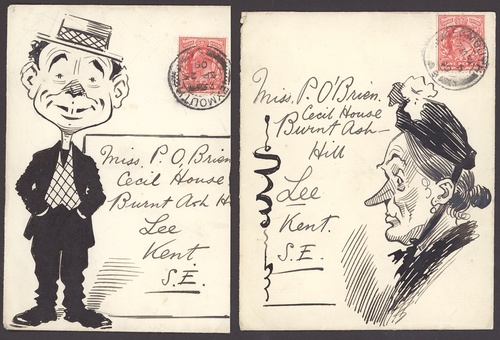 Miss. P. O'Brien
Cecil House
Burnt Ash H
Lee
Kent.
S.E.
Miss. P. O'Brien.
Cecil House
Burnt Ash-
Hill
Lee
Kent.
S.E.